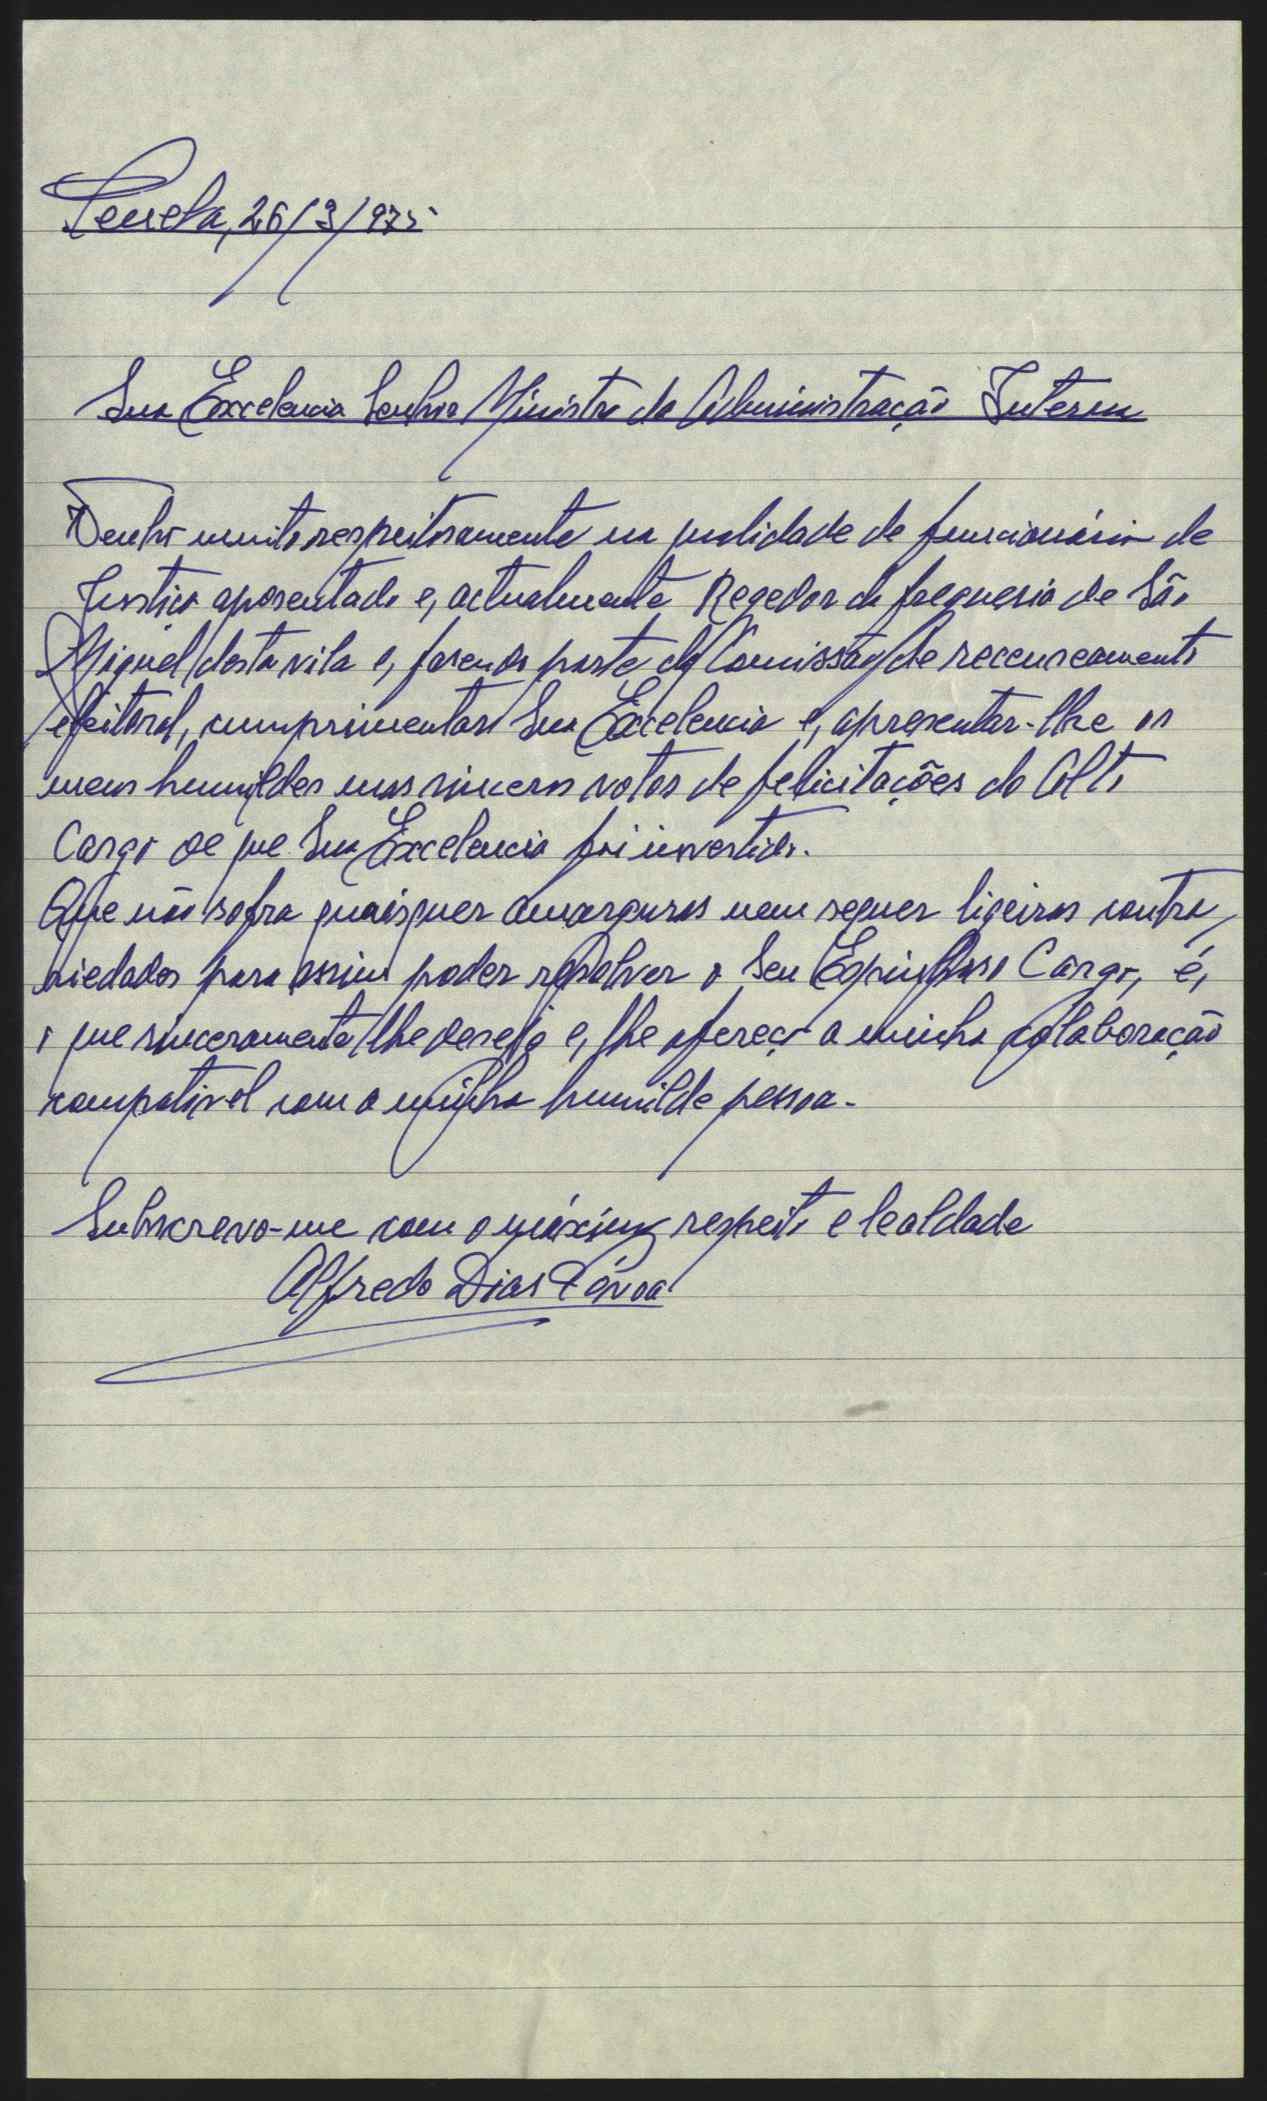 Penela, 26/3/975
Sua Excelencia Senhor Ministro da Administração Interna
Venho muito respeitosamente na qualidade de funcionário de
Justiça aposentado e, actualmente Regedor da freguesia de São
Miguel desta vila e, fasendo parte da Comissão de recenceamento
eleitoral, cumprimentar Sua Excelencia e, apresentar-lhe os
meus humildes mas sinceros votos de felicitações do Alto
Cargo de que Sua Excelencia foi investido.
Que não sofra quaisquer amarguras nem sequer ligeiras contra,
riedades para assim poder resolver o Seu Espinhoso Cargo, é,
o que sinceramente lhe desejo e, lhe ofereço a minha colaboração
compativel com a minha humilde pessoa.
Subscrevo-me com o máximo respeito e lealdade
Alfredo Dias Póvoa